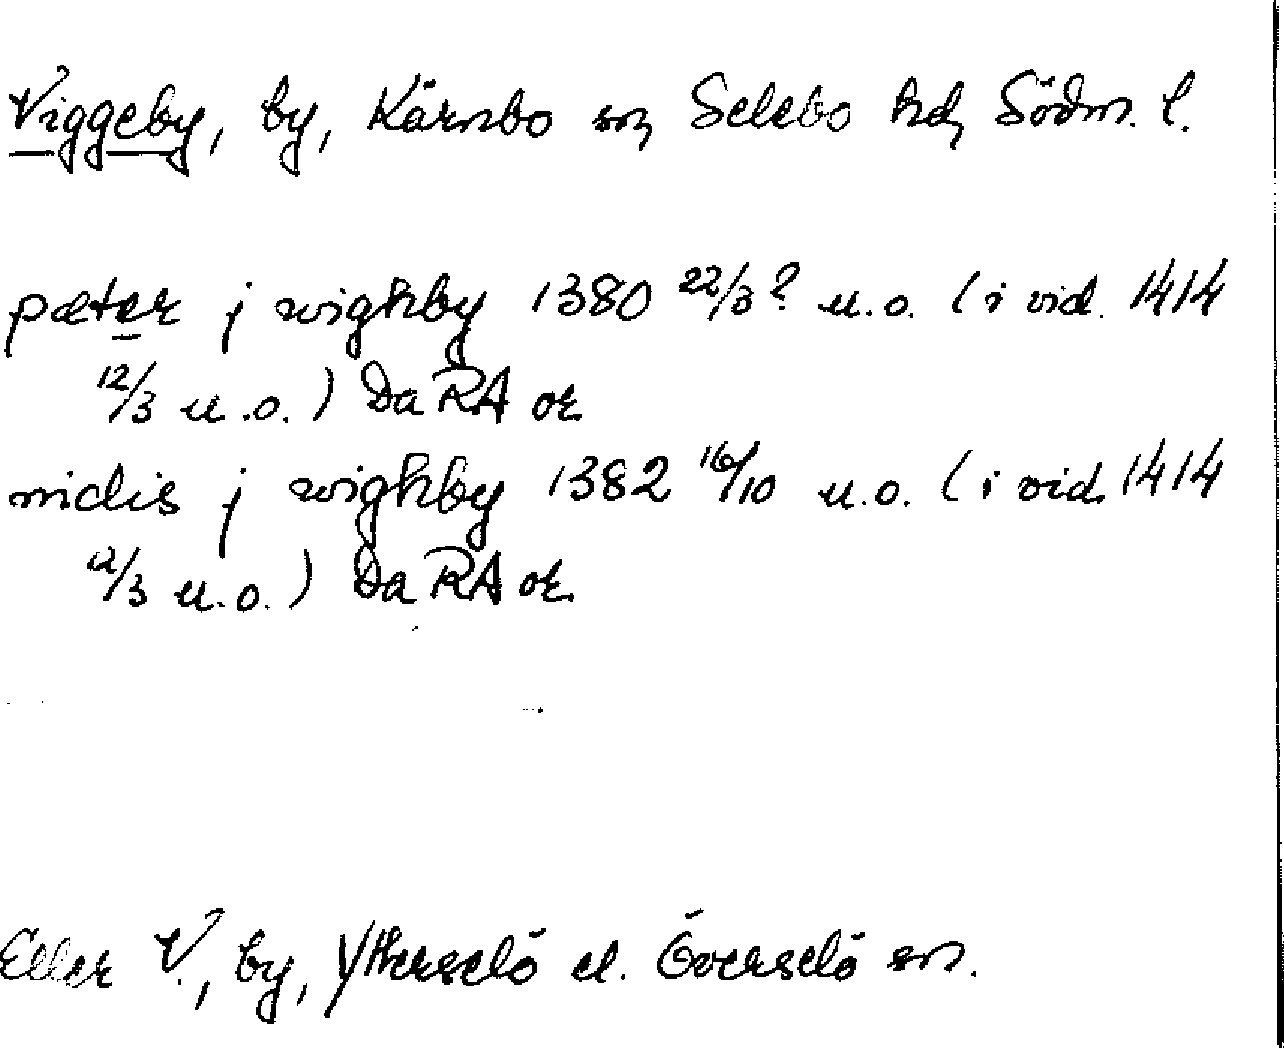 Viggeby, by, Kärnbo sn, Selebo hd, Södm. l.
pæter j wighby 1380 22/3? u.o. (i vid. 1414
12/3 u.o.) Da RA or
niclis j wighby 1382 16/10 u.o. (i vid. 1414
12/3 u.o.) Da RA or.
Eller V., by, Ytterselö el. Överselö sn.